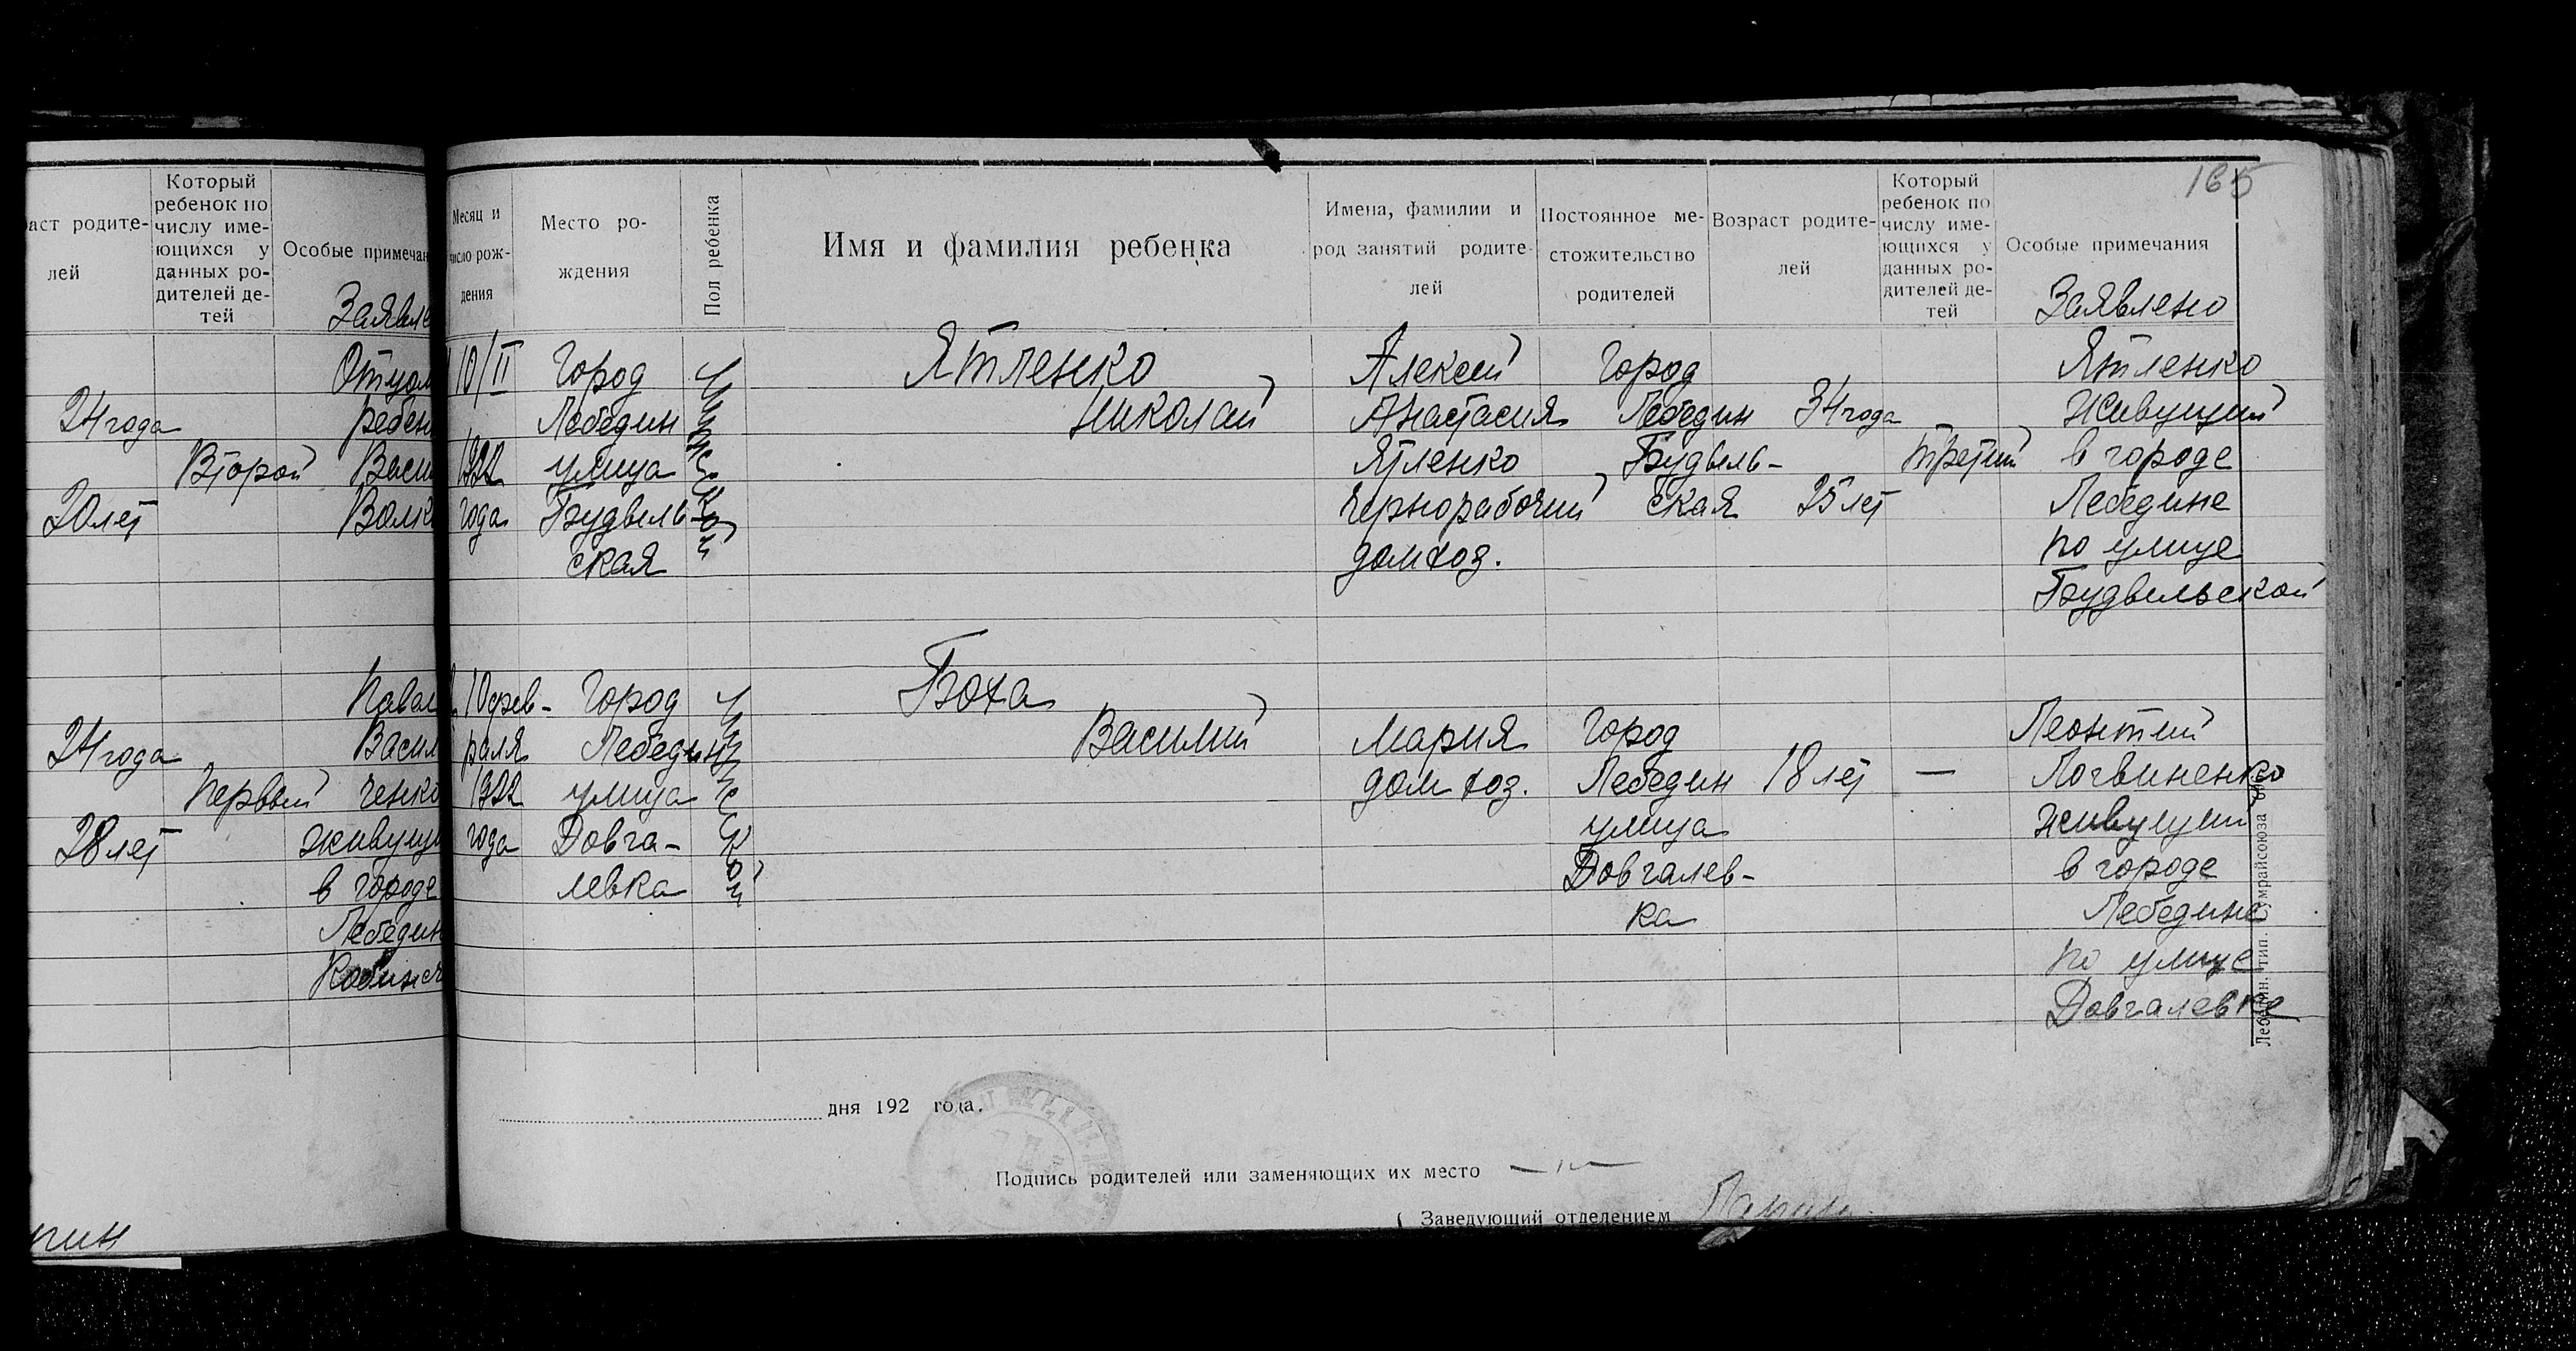 Который
ребенок по
числу име-
ющихся у
данных ро-
дителей де-
тей
аст родите-
лей
Особые примечан
Заявле
Отцом
24 года
ребен
Второй
Васи
20 лет
Волк
Павал
24 года
Васил
Первый
ченко
28 лет
живущи
в городе
Лебедин
Кобинс
165
Месяц и
число рож-
дения
Место ро-
ждения
Пол ребенка
Имя и фамилия ребенка
Имена, фамилии и
род занятий родите-
лей
Постоянное ме-
стожительство
родителей
Возраст родите-
лей
Который
ребенок по
числу име-
ющихся у
данных ро-
дителей де-
тей
Особые примечания
Заявлено
10/II
1922
года
Город
Лебедин
улица
Будвиль
ская
Мужской
Ятленко
Николай
Алексей
Анастасия
Ятленко
Чернорабочий
домхоз.
Город
Лебедин
Будвиль-
ская
34 года
25 лет
третий
Ятленко
Живущий
в городе
Лебедине
по улице
Будвильской
10 фев-
раля
1922
года
Город
Лебедин
улица
Довга-
левка
Мужской
Боха
Василий
Мария
домхоз.
Город
Лебедин
улица
Довгалев-
ка
18 лет
—
Леонтий
Логвиненко
живущий
в городе
Лебедине
по улице
Довгалевке
дня 192 года.
Подпись родителей или заменяющих их место
Заведующий отделением